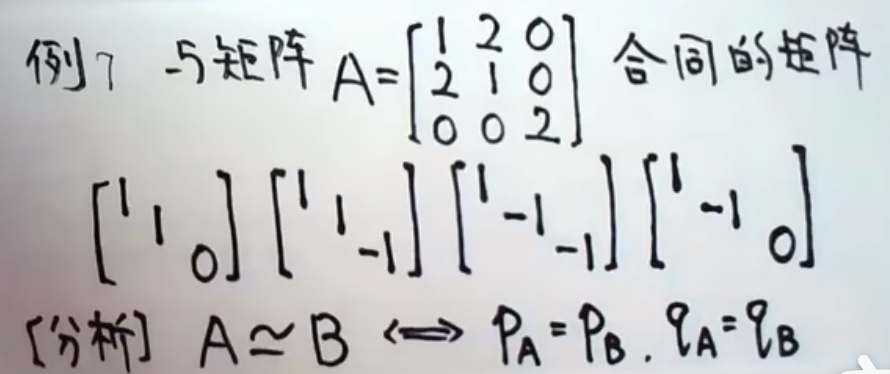 例7 与矩阵 A=[1 2 0; 2 1 0; 0 0 2] 合同的矩阵
[1 1 0] [1 1 -1] [1 -1 -1] [1 -1 0]
[分析] A≃B ⟺ PA=PB. qA=qB